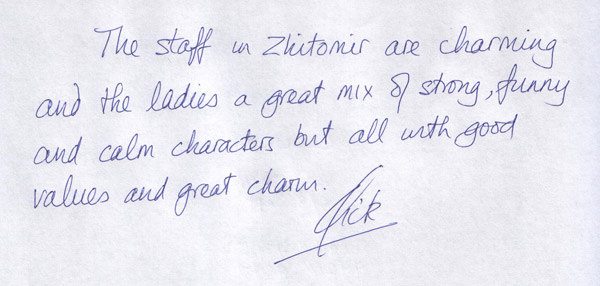 The staff in Zhitomir are charming
and the ladies a great mix of strong, funny
and calm characters but all with good
values and great charm.